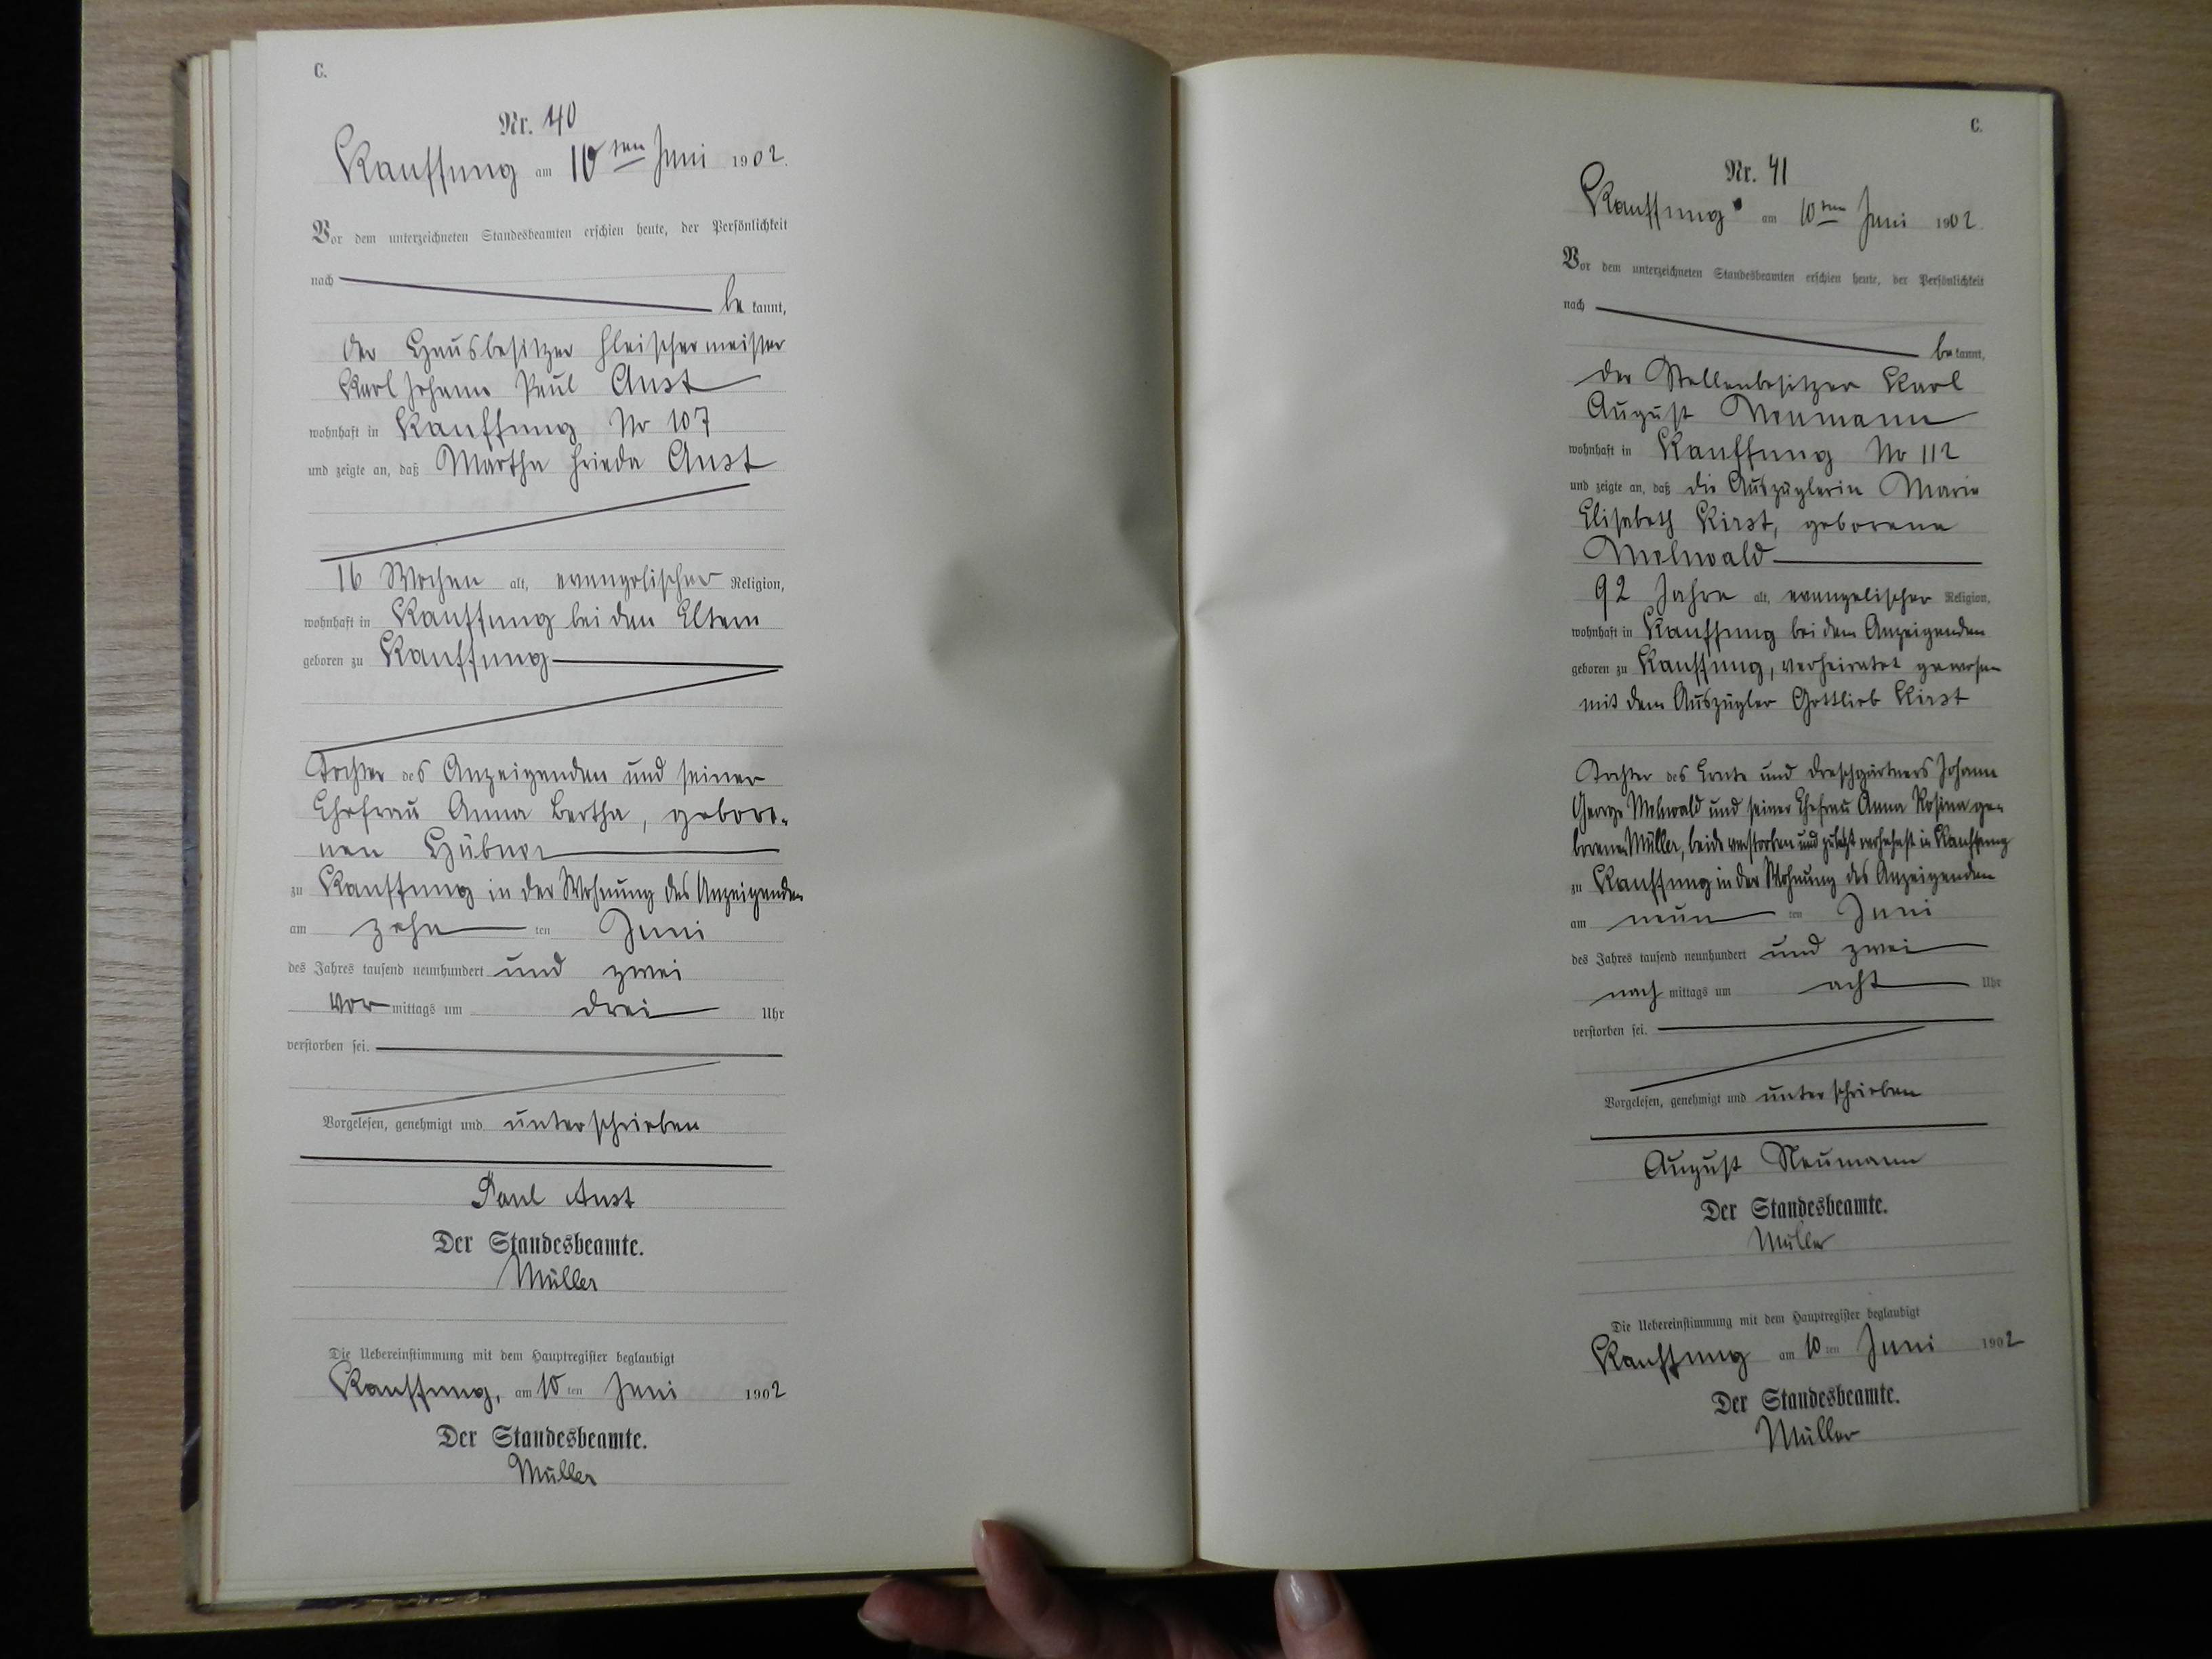 C.
Nr. 40
Kauffung am 10ten Juni 1902.
Vor dem unterzeichneten Standesbeamten erschien heute, der Persönlichkeit
nach
be kannt,
der Hausbesitzer Fleischermeister
Karl Johann Paul Aust
wohnhaft in Kauffung No 107
und zeigte an, daß Martha Frieda Aust
16 Wochen alt, evangelischer Religion,
wohnhaft in Kauffung bei den Eltern
geboren zu Kauffung
Tochter des Anzeigenden und seiner
Ehefrau Anna Bertha, gebore-
nen Hübner
zu Kauffung in der Wohnung des Anzeigenden
am zehn ten Juni
des Jahres tausend neunhundert und zwei
vor mittags um drei Uhr
verstorben sei.
Vorgelesen, genehmigt und unterschrieben
Paul Aust
Der Standesbeamte.
Müller
Die Uebereinstimmung mit dem Hauptregister beglaubigt
Kauffung, am 10 ten Juni 1902
Der Standesbeamte.
Müller
C.
Nr. 41
Kauffung am 10ten Juni 1902
Vor dem unterzeichneten Standesbeamten erschien heute, der Persönlichkeit
nach
be kannt,
der Stellenbesitzer Karl
August Neumann
wohnhaft in Kauffung No 112
und zeigte an, daß die Auszüglerin Marie
Elisabeth Kirst, geborene
Mehwald
92 Jahre alt, evangelischer Religion,
wohnhaft in Kauffung bei dem Anzeigenden
geboren zu Kauffung, verheiratet gewesen
mit dem Auszügler Gottlieb Kirst
Tochter des und Dreschgärtners Johann
George Mehwald und seiner Ehefrau Anna Rosina ge-
borenen Müller, beide verstorben und zuletzt wohnhaft in Kauffung
zu Kauffung in der Wohnung des Anzeigenden
am neun ten Juni
des Jahres tausend neunhundert und zwei
nach mittags um acht Uhr
verstorben sei.
Vorgelesen, genehmigt und unterschrieben
August Neumann
Der Standesbeamte.
Müller
Die Uebereinstimmung mit dem Hauptregister beglaubigt
Kauffung am 10 ten Juni 1902
Der Standesbeamte.
Müller